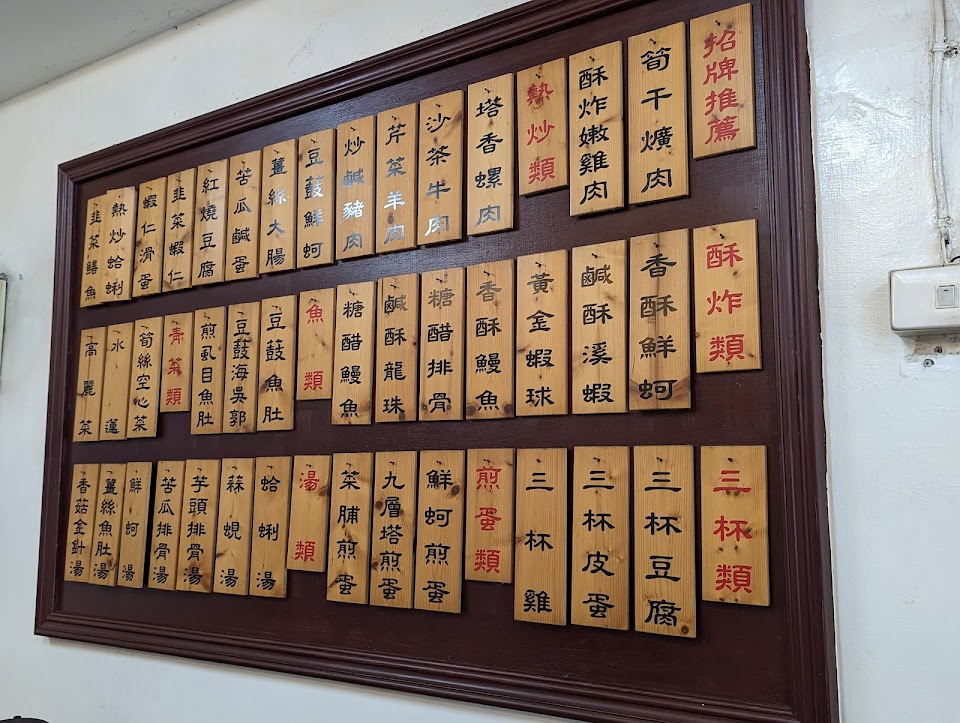 招牌推薦
筍干爌肉
酥炸嫩雞肉
熱炒類
塔香螺肉
沙茶牛肉
芹菜羊肉
炒鹹豬肉
豆鼓鮮蚵
薑絲大腸
苦瓜鹹蛋
紅燒豆腐
韭菜蝦仁
蝦仁滑蛋
熱炒蛤蜊
韭菜鱔魚
酥炸類
香酥鮮蚵
鹹酥溪蝦
黃金蝦球
香酥鰻魚
糖醋排骨
鹹酥龍珠
糖醋鰻魚
魚類
豆鼓魚肚
豆鼓海吳郭
煎虱目魚肚
青菜類
筍絲空心菜
水蓮
高麗菜
三杯類
三杯豆腐
三杯皮蛋
三杯雞
煎蛋類
鮮蚵煎蛋
九層塔煎蛋
菜脯煎蛋
湯類
蛤蜊湯
蒜蜆湯
芋頭排骨湯
苦瓜排骨湯
鮮蚵湯
薑絲魚肚湯
香菇金針湯